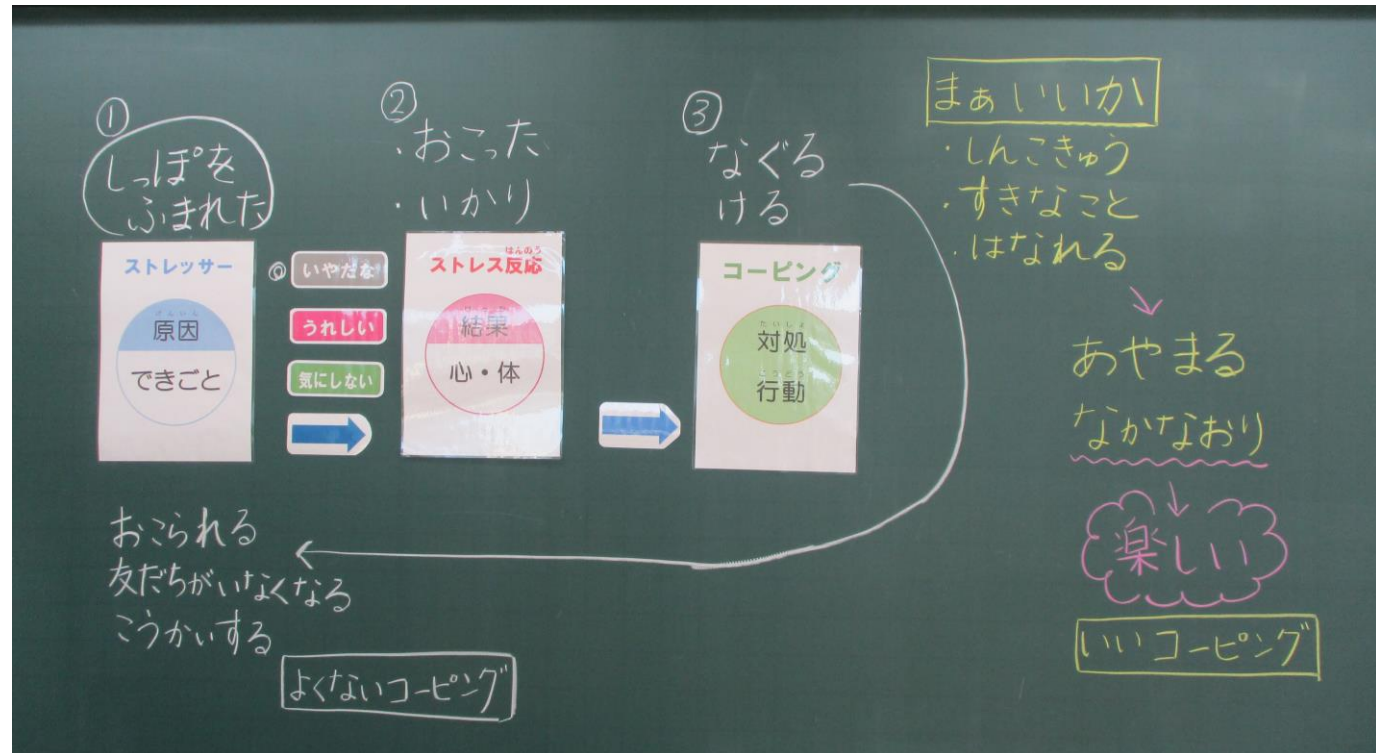 ①
しっぽを
ふまれた
ストレッサー
げんいん
原因
できごと
◎
いやだな
うれしい
気にしない
②
・おこった
・いかり
はんのう
ストレス反応
結果
心・体
③
なぐる
ける
コーピング
たいしょ
対処
こうどう
行動
おこられる
友だちがいなくなる
こうかいする
よくないコーピング
まぁいいか
・しんこきゅう
・すきなこと
・はなれる
あやまる
なかなおり
楽しい
いいコーピング